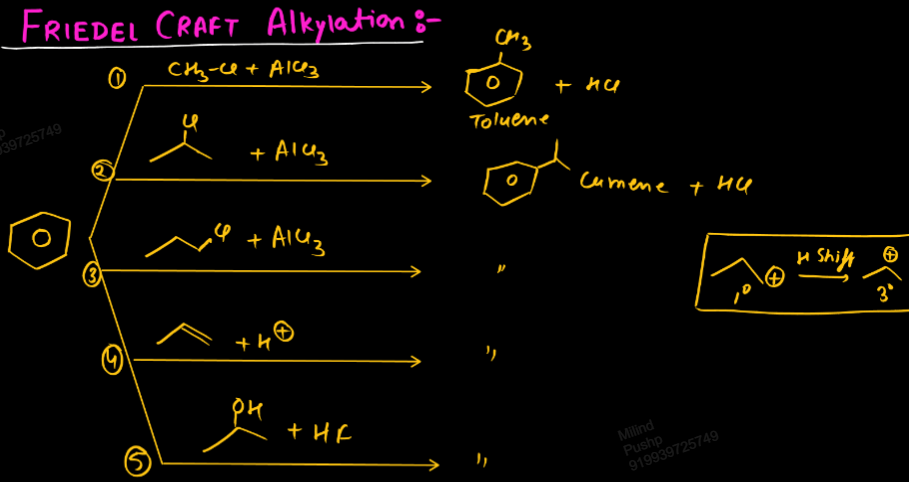 FRIEDEL CRAFT Alkylation :-
① CH3-Cl + AlCl3
CH3
+ HCl
Toluene
②
Cl
+ AlCl3
Cumene + HCl
③
Cl + AlCl3
"
⊕ H Shift ⊕
1° 3°
④
+ H⊕
"
⑤
OH
+ HF
"
39725749
Milind
Pushp
919939725749